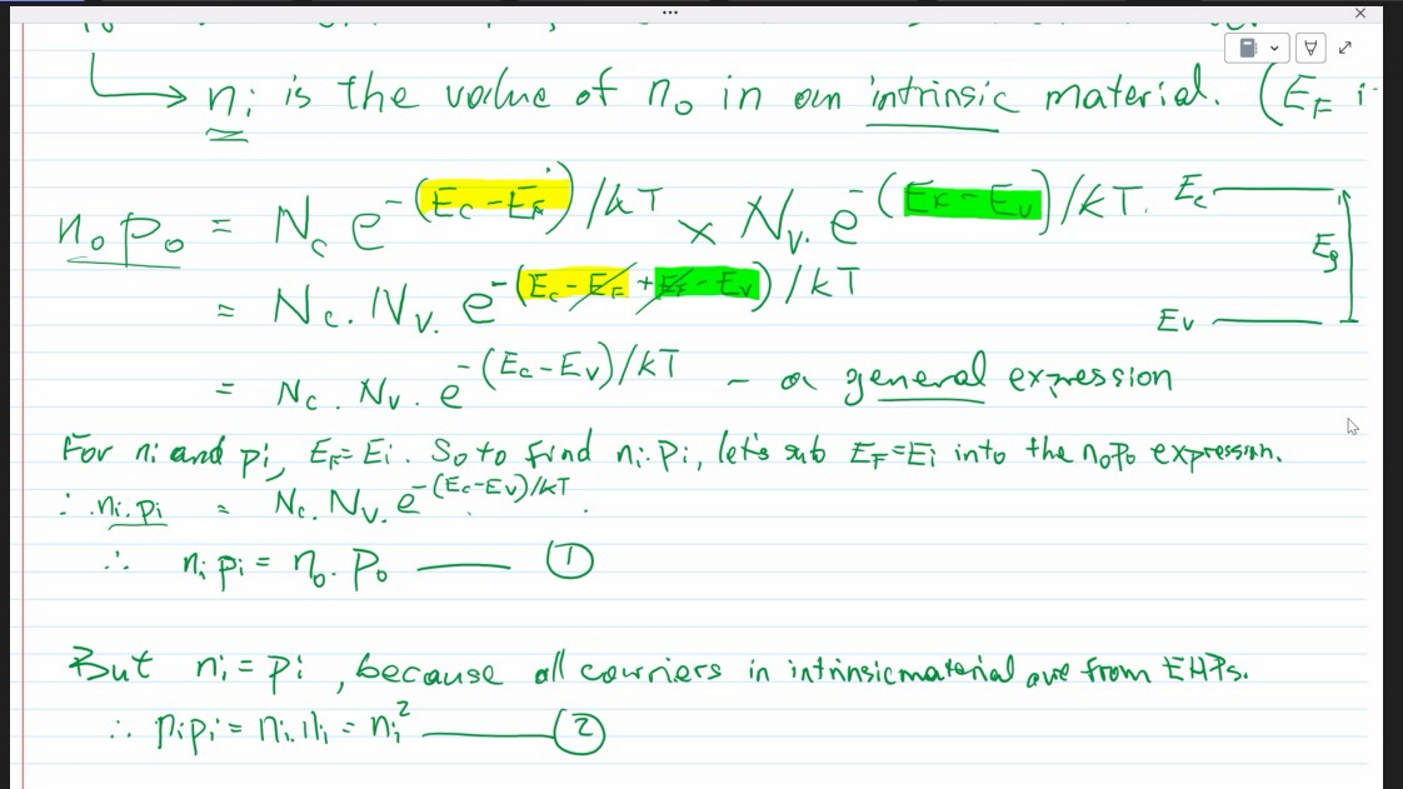 n_i is the value of n_o in an intrinsic material. (E_F i
n_o p_o = N_c e^-(E_c - E_F)/kT × N_v. e^-(E_F - E_v)/kT.
E_c
E_g
E_v
= N_c. N_v. e^-(E_c - E_F + E_F - E_v)/kT
= N_c. N_v. e^-(E_c - E_v)/kT - a general expression
For ni and pi, E_F = Ei. So to find ni.pi, let's sub E_F = Ei into the nopo expression.
∴ ni.pi = N_c. N_v. e^-(E_c - E_v)/kT
∴ n_i p_i = n_o. p_o —— ①
But n_i = p_i, because all carriers in intrinsic material are from EHPs.
∴ n_i p_i = n_i. n_i = n_i^2 —— ②